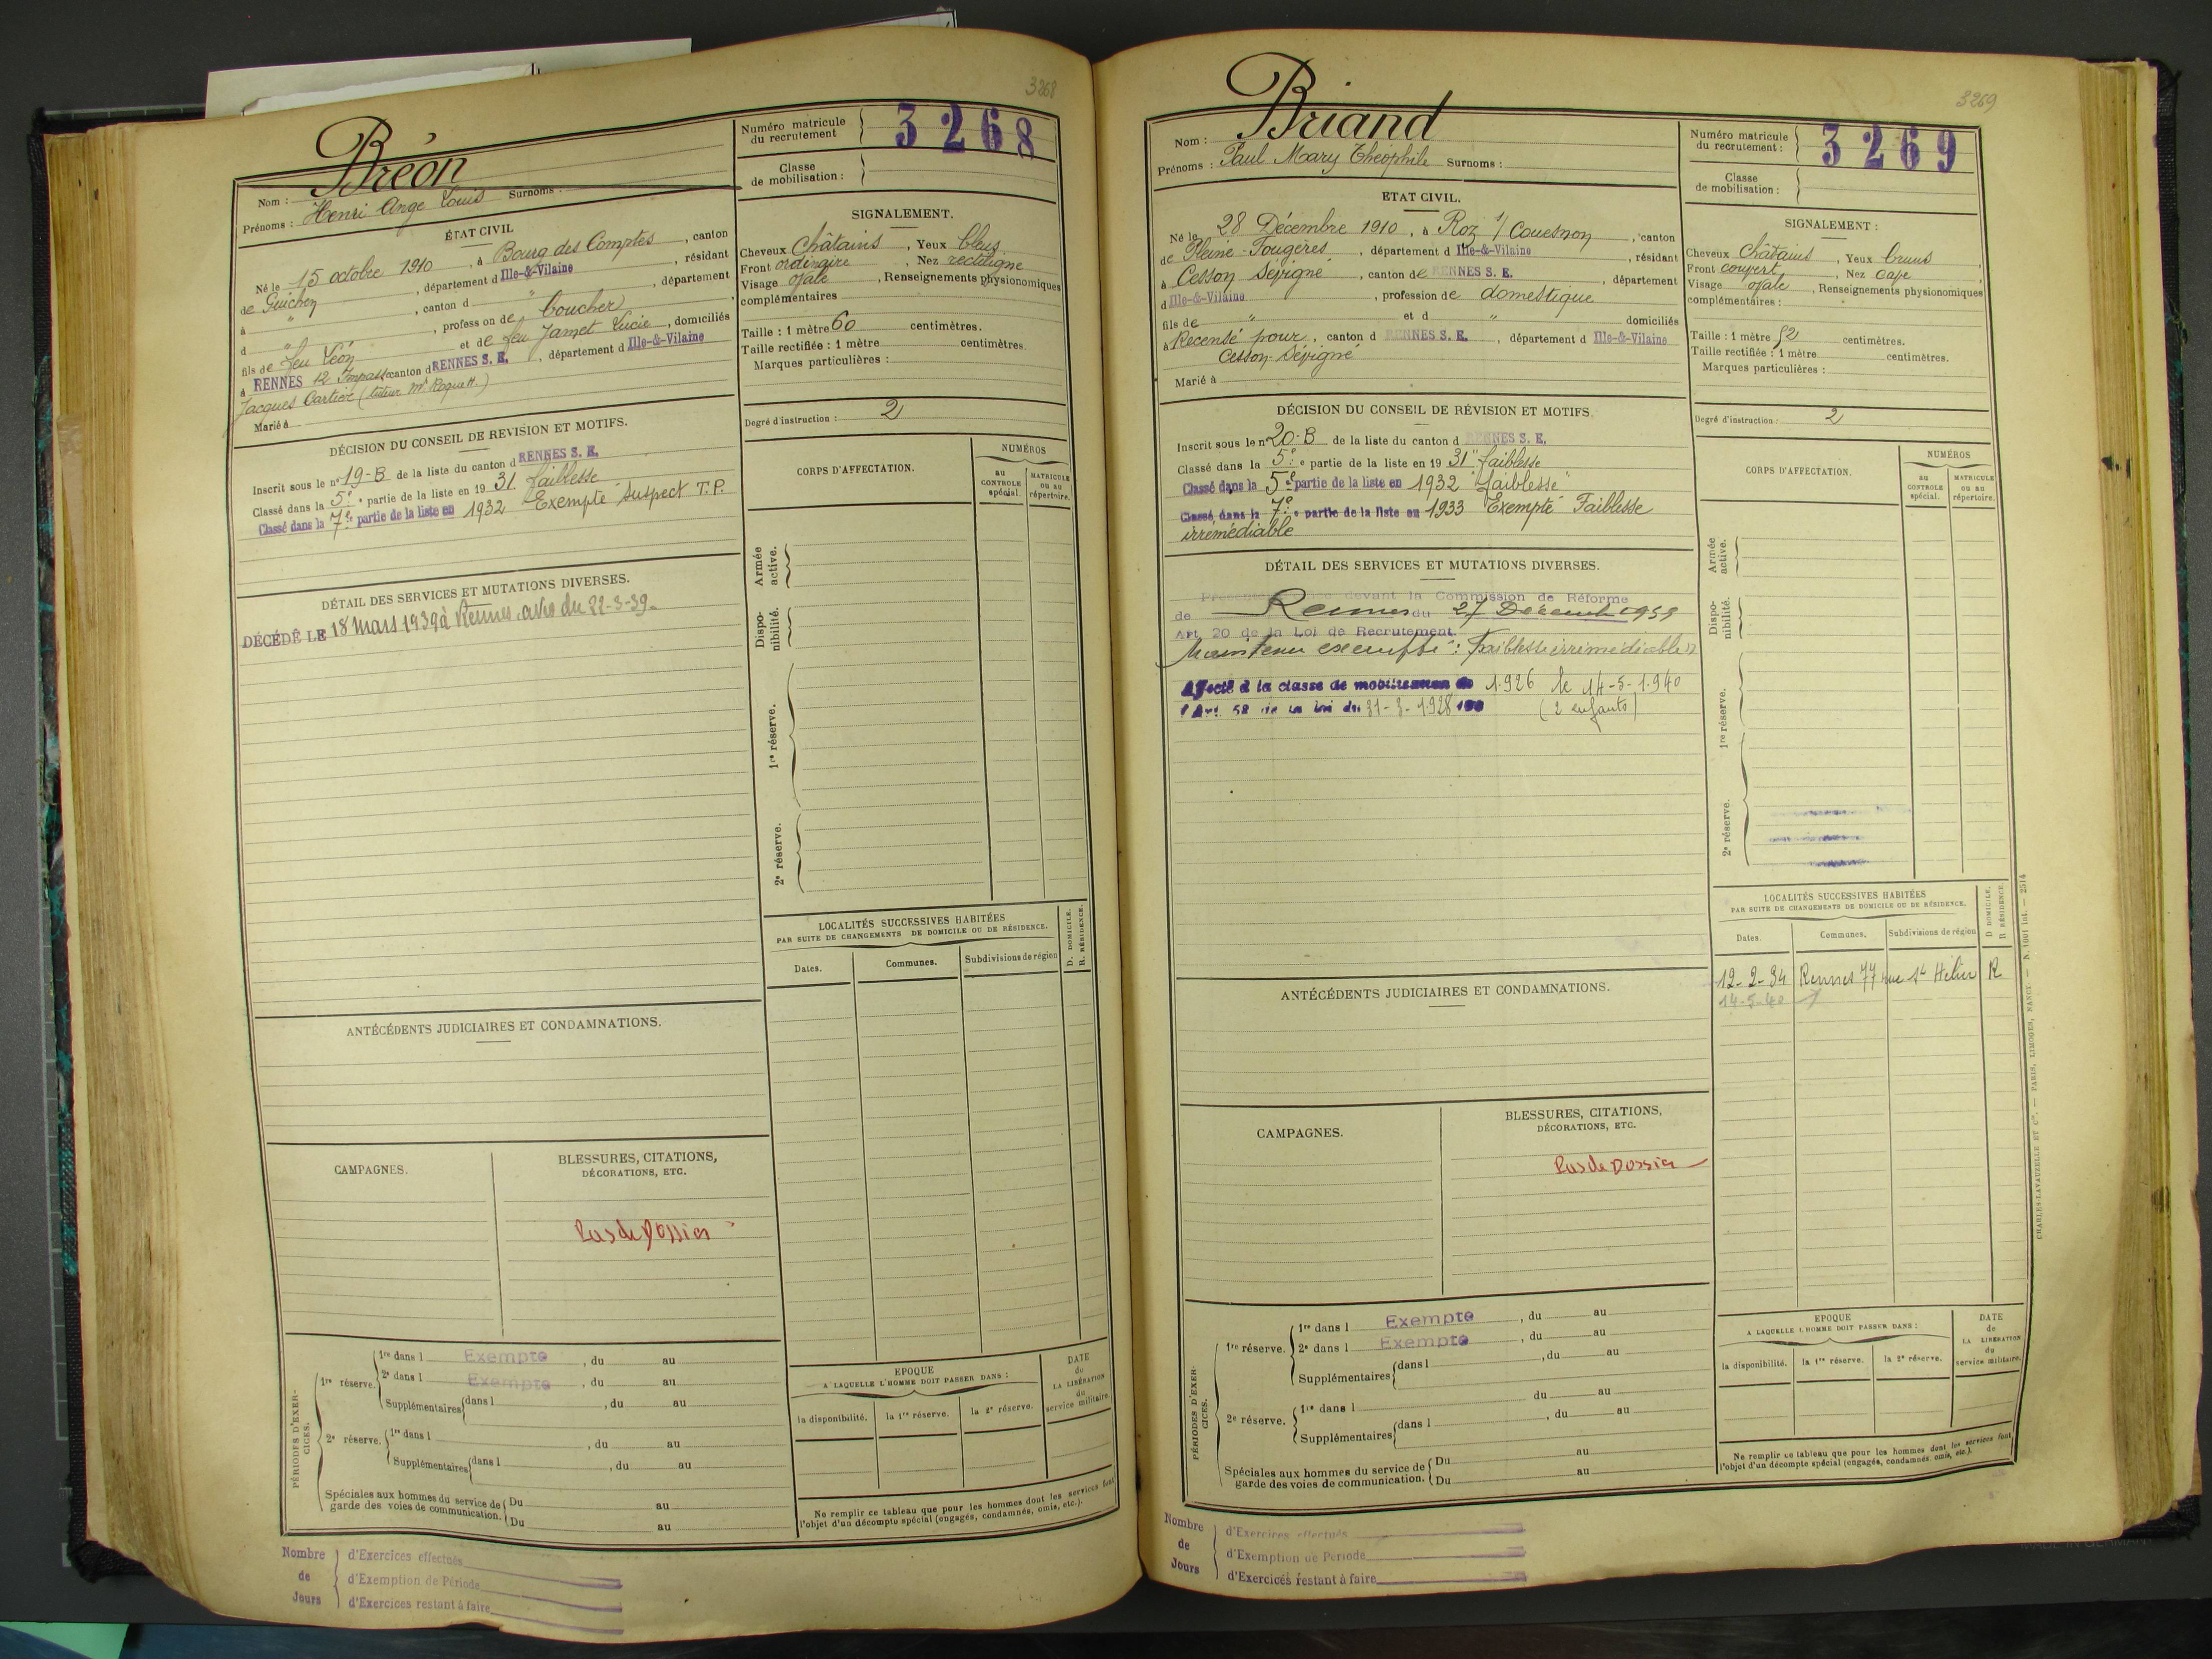 3268
Bréon
Nom :
Prénoms : Henri Ange Louis Surnoms :
Numéro matricule du recrutement 3268
Classe de mobilisation :
ÉTAT CIVIL
Né le 15 octobre 1910, à Bourg des Comptes, canton
de Guichen, département d Ille-&-Vilaine, résidant
à " , canton d " , département
d " , profession de boucher,
fils de feu Léon et de feu Jamet Lucie, domiciliés
à RENNES 12 Impasse canton d RENNES S. E., département d Ille-&-Vilaine
Jacques Cartier (tuteur Mr Roquett.)
Marié à
SIGNALEMENT.
Cheveux Châtains, Yeux bleus
Front ordinaire, Nez rectiligne
Visage ovale, Renseignements physionomiques
complémentaires
Taille : 1 mètre 60 centimètres.
Taille rectifiée : 1 mètre centimètres.
Marques particulières :
Degré d'instruction : 2
DÉCISION DU CONSEIL DE REVISION ET MOTIFS.
Inscrit sous le n° 19-B de la liste du canton d RENNES S. E.
Classé dans la 5e partie de la liste en 19 31. faiblesse
Classé dans la 7e partie de la liste en 1932 "Exempté" suspect T.P.
DÉTAIL DES SERVICES ET MUTATIONS DIVERSES.
DÉCÉDÉ LE 18 Mars 1939 à Rennes. avis du 22-3-39.
CORPS D'AFFECTATION.
NUMÉROS
au CONTROLE spécial.
MATRICULE ou au répertoire.
Armée active.
Disponibilité.
1re réserve.
2e réserve.
LOCALITÉS SUCCESSIVES HABITÉES
PAR SUITE DE CHANGEMENTS DE DOMICILE OU DE RÉSIDENCE.
Dates.
Communes.
Subdivisions de région
D. DOMICILE.
R. RÉSIDENCE.
ANTÉCÉDENTS JUDICIAIRES ET CONDAMNATIONS.
CAMPAGNES.
BLESSURES, CITATIONS,
DÉCORATIONS, ETC.
Pas de Dossier
PÉRIODES D'EXERCICES.
1re réserve.
1re dans l Exempté, du au
2e dans l Exempté, du au
Supplémentaires dans l , du au
2e réserve.
1re dans l , du au
Supplémentaires dans l , du au
Spéciales aux hommes du service de garde des voies de communication.
Du au
Du au
EPOQUE
A LAQUELLE L'HOMME DOIT PASSER DANS :
la disponibilité.
la 1re réserve.
la 2e réserve.
DATE de LA LIBÉRATION du service militaire.
Ne remplir ce tableau que pour les hommes dont les services font
l'objet d'un décompte spécial (engagés, condamnés, omis, etc.).
Nombre de Jours
d'Exercices effectués
d'Exemption de Période
d'Exercices restant à faire
3269
Briand
Nom :
Prénoms : Paul Mary Théophile Surnoms :
Numéro matricule du recrutement : 3269
Classe de mobilisation :
ETAT CIVIL.
Né le 28 Décembre 1910, à Roz s/ Couesnon, canton
de Pleine-Fougères, département d Ille-&-Vilaine, résidant
à Cesson Sévigné, canton de RENNES S. E., département
d Ille-&-Vilaine, profession de domestique
fils de " et d " domiciliés
à Recensé pour, canton d RENNES S. E., département d Ille-&-Vilaine
Cesson-Sévigné
Marié à
SIGNALEMENT :
Cheveux Châtains, Yeux bruns
Front couvert, Nez cave
Visage ovale, Renseignements physionomiques
complémentaires :
Taille : 1 mètre 52 centimètres.
Taille rectifiée : 1 mètre centimètres.
Marques particulières :
Degré d'instruction : 2
DÉCISION DU CONSEIL DE RÉVISION ET MOTIFS.
Inscrit sous le n° 20-B de la liste du canton d RENNES S. E.
Classé dans la 5e partie de la liste en 19 31 "faiblesse
Classé dans la 5e partie de la liste en 1932 "Faiblesse"
Classé dans la 7e partie de la liste en 1933 "Exempté" Faiblesse
irrémédiable
DÉTAIL DES SERVICES ET MUTATIONS DIVERSES.
devant la Commission de Réforme
de Rennes du 27 Décembre 1939
Art. 20 de la Loi de Recrutement.
Maintenu exempté : Faiblesse irrémédiable
Affecté à la classe de mobilisation de 1.926 le 14-5-1.940
Art 58 de la loi du 31-3-1.928 (2 enfants)
CORPS D'AFFECTATION.
NUMÉROS
au CONTROLE spécial.
MATRICULE ou au répertoire.
Armée active.
Disponibilité.
1re réserve.
2e réserve.
LOCALITÉS SUCCESSIVES HABITÉES
PAR SUITE DE CHANGEMENTS DE DOMICILE OU DE RÉSIDENCE.
Dates.
Communes.
Subdivisions de région
D DOMICILE.
R RÉSIDENCE.
12-2-34 Rennes 77 rue St Hélier R
14-5-40
ANTÉCÉDENTS JUDICIAIRES ET CONDAMNATIONS.
CAMPAGNES.
BLESSURES, CITATIONS,
DÉCORATIONS, ETC.
Pas de Dossier
PÉRIODES D'EXERCICES.
1re réserve.
1re dans l Exempté, du au
2e dans l Exempté, du au
Supplémentaires dans l , du au
du au
2e réserve.
1re dans l
Supplémentaires dans l , du au
Spéciales aux hommes du service de garde des voies de communication.
Du au
Du au
EPOQUE
A LAQUELLE L'HOMME DOIT PASSER DANS :
la disponibilité.
la 1re réserve.
la 2e réserve.
DATE de LA LIBÉRATION du service militaire.
Ne remplir ce tableau que pour les hommes dont les services font
l'objet d'un décompte spécial (engagés, condamnés, omis, etc.).
CHARLES-LAVAUZELLE ET Cie. — PARIS, LIMOGES, NANCY. — N. 1001 int. — 2514
Nombre de Jours
d'Exercices effectués
d'Exemption de Période
d'Exercices restant à faire